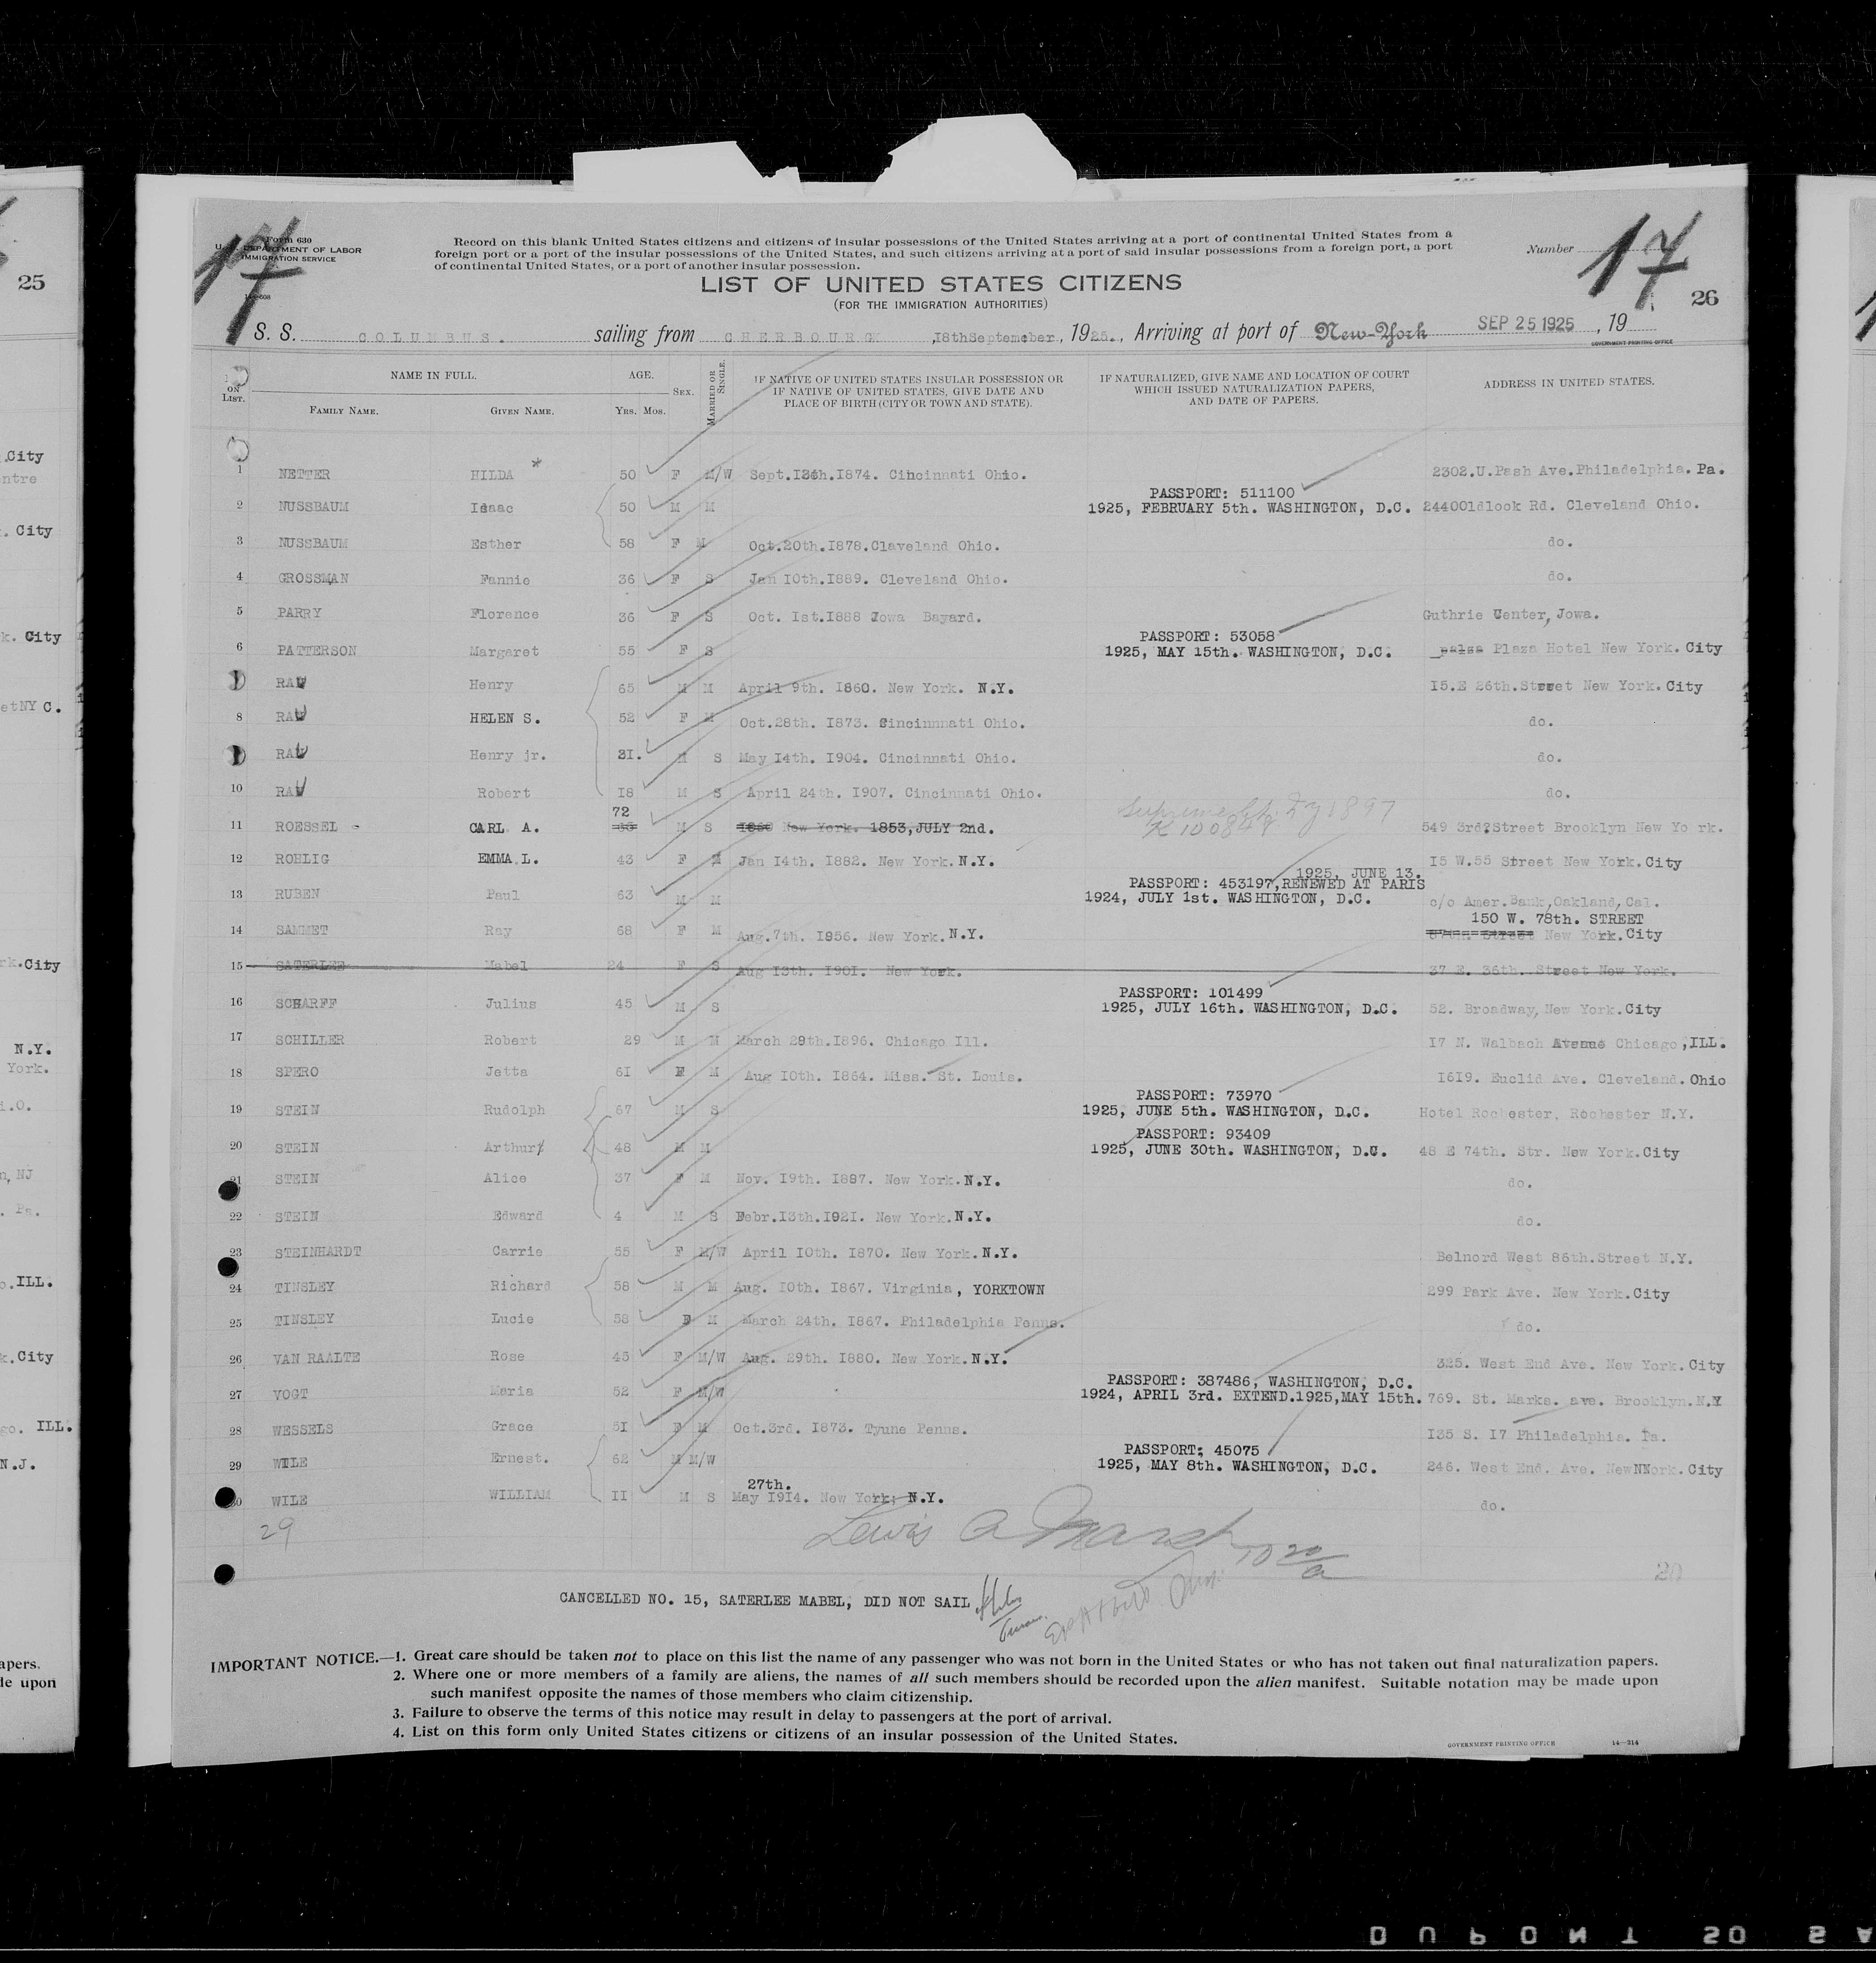 25
17
Form 630
U. S. DEPARTMENT OF LABOR
IMMIGRATION SERVICE
Record on this blank United States citizens and citizens of insular possessions of the United States arriving at a port of continental United States from a
foreign port or a port of the insular possessions of the United States, and such citizens arriving at a port of said insular possessions from a foreign port, a port
of continental United States, or a port of another insular possession.
Number
17
26
LIST OF UNITED STATES CITIZENS
(FOR THE IMMIGRATION AUTHORITIES)
S. S. COLUMBUS. sailing from CHERBOURG ,18thSeptember, 1925., Arriving at port of New-York SEP 25 1925, 19
GOVERNMENT PRINTING OFFICE
ON LIST. NAME IN FULL. FAMILY NAME. GIVEN NAME. AGE. YRS. MOS. SEX. MARRIED OR SINGLE. IF NATIVE OF UNITED STATES INSULAR POSSESSION OR IF NATIVE OF UNITED STATES, GIVE DATE AND PLACE OF BIRTH (CITY OR TOWN AND STATE). IF NATURALIZED, GIVE NAME AND LOCATION OF COURT WHICH ISSUED NATURALIZATION PAPERS, AND DATE OF PAPERS. ADDRESS IN UNITED STATES.
1 NETTER HILDA * 50 F M/W Sept. 1874. Cincinnati Ohio. 2302.U.Pash Ave.Philadelphia. Pa.
PASSPORT: 511100
2 NUSSBAUM Isaac 50 M M 1925, FEBRUARY 5th. WASHINGTON, D.C. 2440Oldlook Rd. Cleveland Ohio.
3 NUSSBAUM Esther 58 F M Oct.20th.I878.Claveland Ohio. do.
4 GROSSMAN Fannie 36 F S Jan I0th.I889. Cleveland Ohio. do.
5 PARRY Florence 36 F S Oct. Ist.I888 Iowa Bayard. Guthrie Center, Jowa.
PASSPORT: 53058
6 PATTERSON Margaret 55 F S 1925, MAY 15th. WASHINGTON, D.C. Plaza Hotel New York. City
RAU Henry 65 M M April 9th. I860. New York. N.Y. I5.E 26th.Street New York. City
8 RAU HELEN S. 52 F M Oct.28th. I873. Cincinnnati Ohio. do.
RAU Henry jr. 21. M S May I4th. I904. Cincinnati Ohio. do.
10 RAU Robert I8 M S April 24th. I907. Cincinnati Ohio. do.
72
Supreme Ct. 1897
11 ROESSEL - CARL A. M S New York. 1853,JULY 2nd. 549 3rd?Street Brooklyn New Yo rk.
12 ROHLIG EMMA L. 43 F M Jan I4th. I882. New York. N.Y. I5 W.55 Street New York. City
1925, JUNE 13.
PASSPORT: 453197,RENEWED AT PARIS
13 RUBEN Paul 63 M M 1924, JULY 1st. WASHINGTON, D.C. c/o Amer. Bank,Oakland, Cal.
150 W. 78th. STREET
14 SAMMET Ray 68 F M Aug.7th. I856. New York. N.Y. New York. City
15 SATERLEE Mabel 24 F S Aug I3th. I90I. New York. 37 E. 36th. Street New York.
PASSPORT: 101499
16 SCHARFF Julius 45 M S 1925, JULY 16th. WASHINGTON, D.C. 52. Broadway, New York. City
17 SCHILLER Robert 29 M M March 29th.I896. Chicago Ill. I7 N. Walbach Avenue Chicago ,ILL.
18 SPERO Jetta 6I F M Aug I0th. I864. Miss. St. Louis. I6I9. Euclid Ave. Cleveland. Ohio
PASSPORT: 73970
19 STEIN Rudolph 67 M S 1925, JUNE 5th. WASHINGTON, D.C. Hotel Rochester, Rochester N.Y.
PASSPORT: 93409
20 STEIN Arthur 48 M M 1925, JUNE 30th. WASHINGTON, D.C. 48 E 74th. Str. New York. City
21 STEIN Alice 37 F M Nov. I9th. I887. New York. N.Y. do.
22 STEIN Edward 4 M S Febr.I3th.I92I. New York. N.Y. do.
23 STEINHARDT Carrie 55 F M/W April I0th. I870. New York. N.Y. Belnord West 86th.Street N.Y.
24 TINSLEY Richard 58 M M Aug. I0th. I867. Virginia, YORKTOWN 299 Park Ave. New York. City
25 TINSLEY Lucie 58 F M March 24th. I867. Philadelphia Penns. do.
26 VAN RAALTE Rose 45 F M/W Aug. 29th. I880. New York. N.Y. 325. West End Ave. New York. City
PASSPORT: 387486, WASHINGTON, D.C.
27 VOGT Maria 52 F M/W 1924, APRIL 3rd. EXTEND.1925,MAY 15th. 769. St. Marks. ave. Brooklyn. N.Y
28 WESSELS Grace 5I F M Oct.3rd. I873. Tyune Penns. I35 S. I7 Philadelphia. Pa.
PASSPORT: 45075
29 WILE Ernest. 62 M M/W 1925, MAY 8th. WASHINGTON, D.C. 246. West End. Ave. NewNYork. City
27th.
30 WILE WILLIAM II M S May I9I4. New York; N.Y. do.
29
Lewis A Marsh
20
CANCELLED NO. 15, SATERLEE MABEL, DID NOT SAIL
IMPORTANT NOTICE.—1. Great care should be taken not to place on this list the name of any passenger who was not born in the United States or who has not taken out final naturalization papers.
2. Where one or more members of a family are aliens, the names of all such members should be recorded upon the alien manifest. Suitable notation may be made upon
such manifest opposite the names of those members who claim citizenship.
3. Failure to observe the terms of this notice may result in delay to passengers at the port of arrival.
4. List on this form only United States citizens or citizens of an insular possession of the United States.
GOVERNMENT PRINTING OFFICE 14—214
DUPONT 20 SA